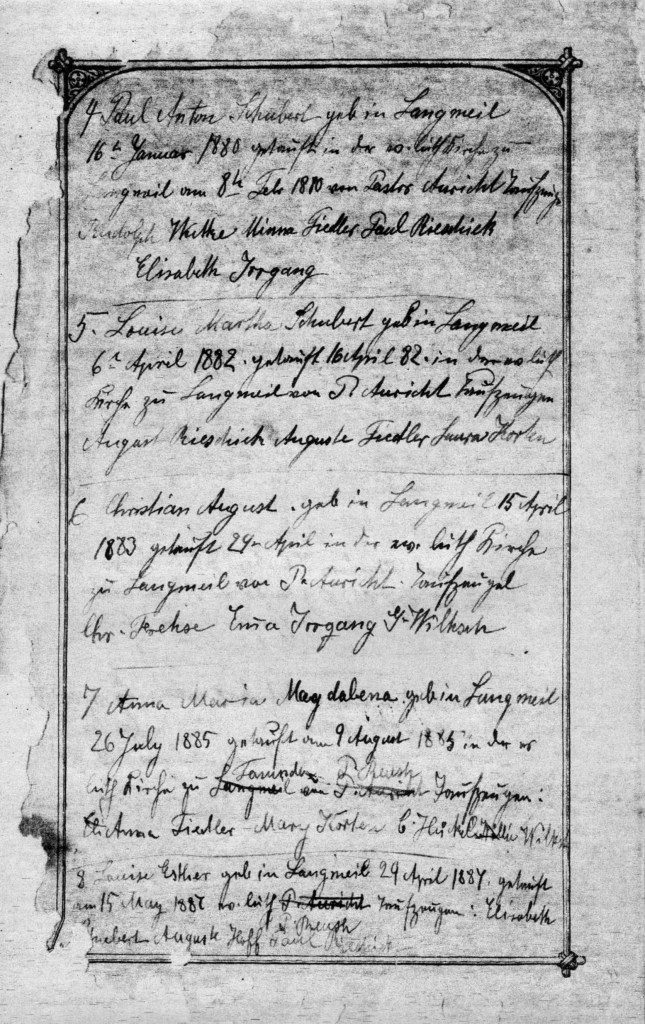 4 Paul Anton Schubert geb in Langmeil
16th Januar 1880 getauft in der ev. luth Kirche zu
Langmeil am 8th Febr 1880 von Pastor Auricht Taufzeuge
Rudolph Wuttke Minna Fiedler Paul Rieschiek
Elisabeth Irrgang
5. Louise Martha Schubert geb in Langmeil
6t April 1882. getauft 16 April 82. in der ev luth
Kirche zu Langmeil von P. Auricht Taufzeugen
August Rieschiek Auguste Fiedler Laura Korten
6 Christian August. geb in Langmeil 15 April
1883 getauft 29n April in der ev. luth Kirche
zu Langmeil von P. Auricht. Taufzeugel
Chr. Emma Irrgang G. Wilksch
7 Anna Maria Magdalena. geb in Langmeil
26 July 1885 getauft am 9 August 1885 in der ev
Tanunda P. Reusch
luth Kirche zu Langmeil von P. Auricht Taufzeugen:
Anna Fiedler Mary Korten
8 Louise Esther geb in Langmeil 29 April 1887. getauft
am 15 May 1887 ev. luth P. Auricht Taufzeugen: Elisabeth
P. Reusch
Auguste Hoff Paul Rieschiek